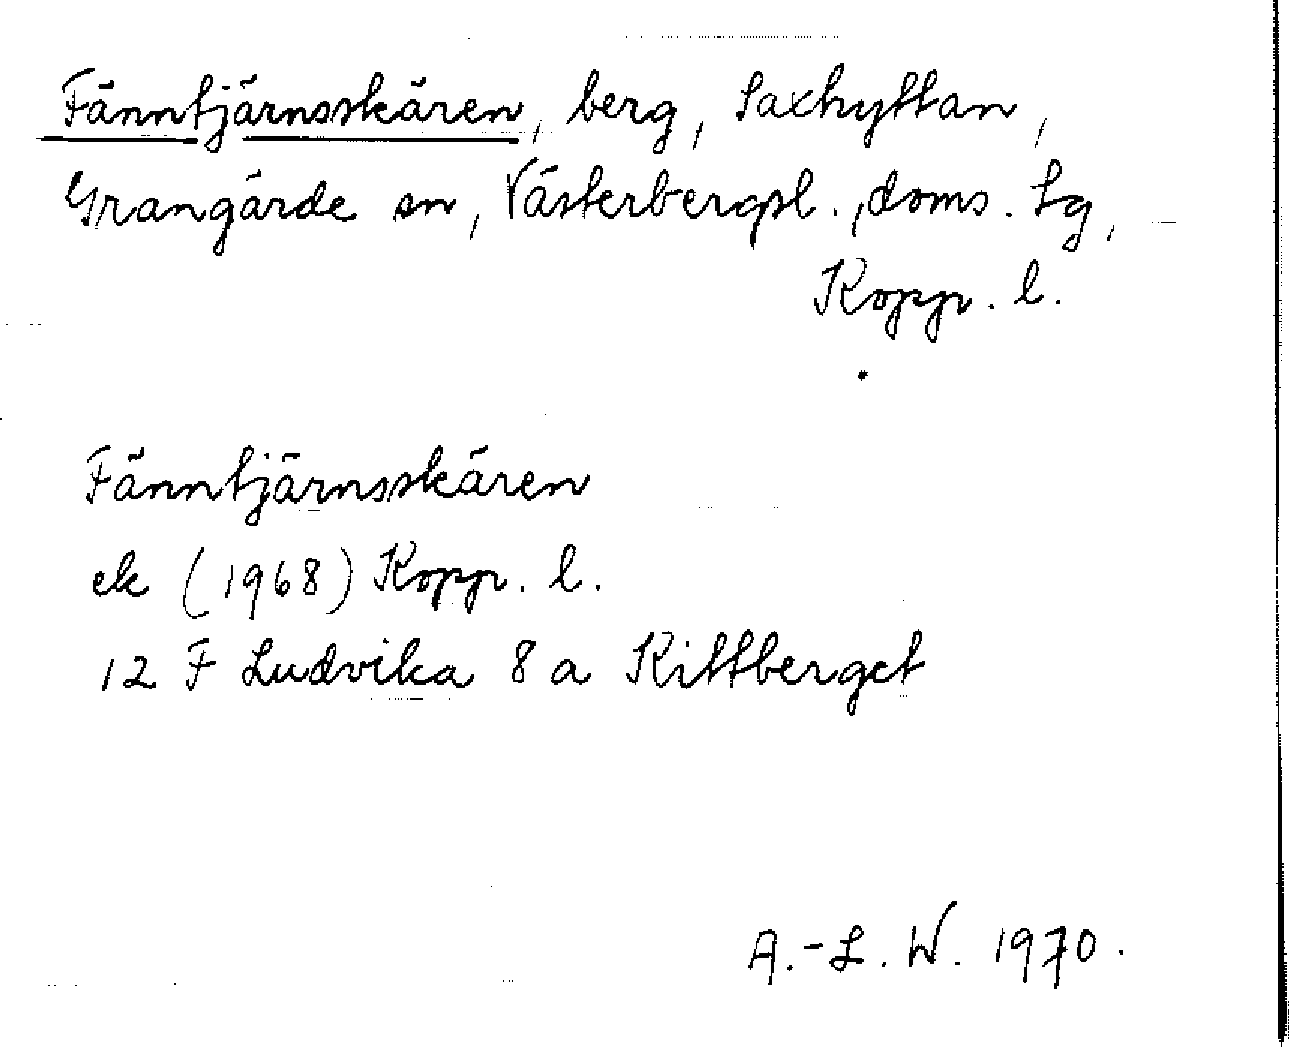 Fänntjärnsskären, berg, Saxhyttan,
Grangärde sn, Västerbergsl., doms. Lg,
Kopp. l.
Fänntjärnsskären
ek (1968) Kopp. l.
12 F Ludvika 8 a Kittberget
A.-L. W. 1970.